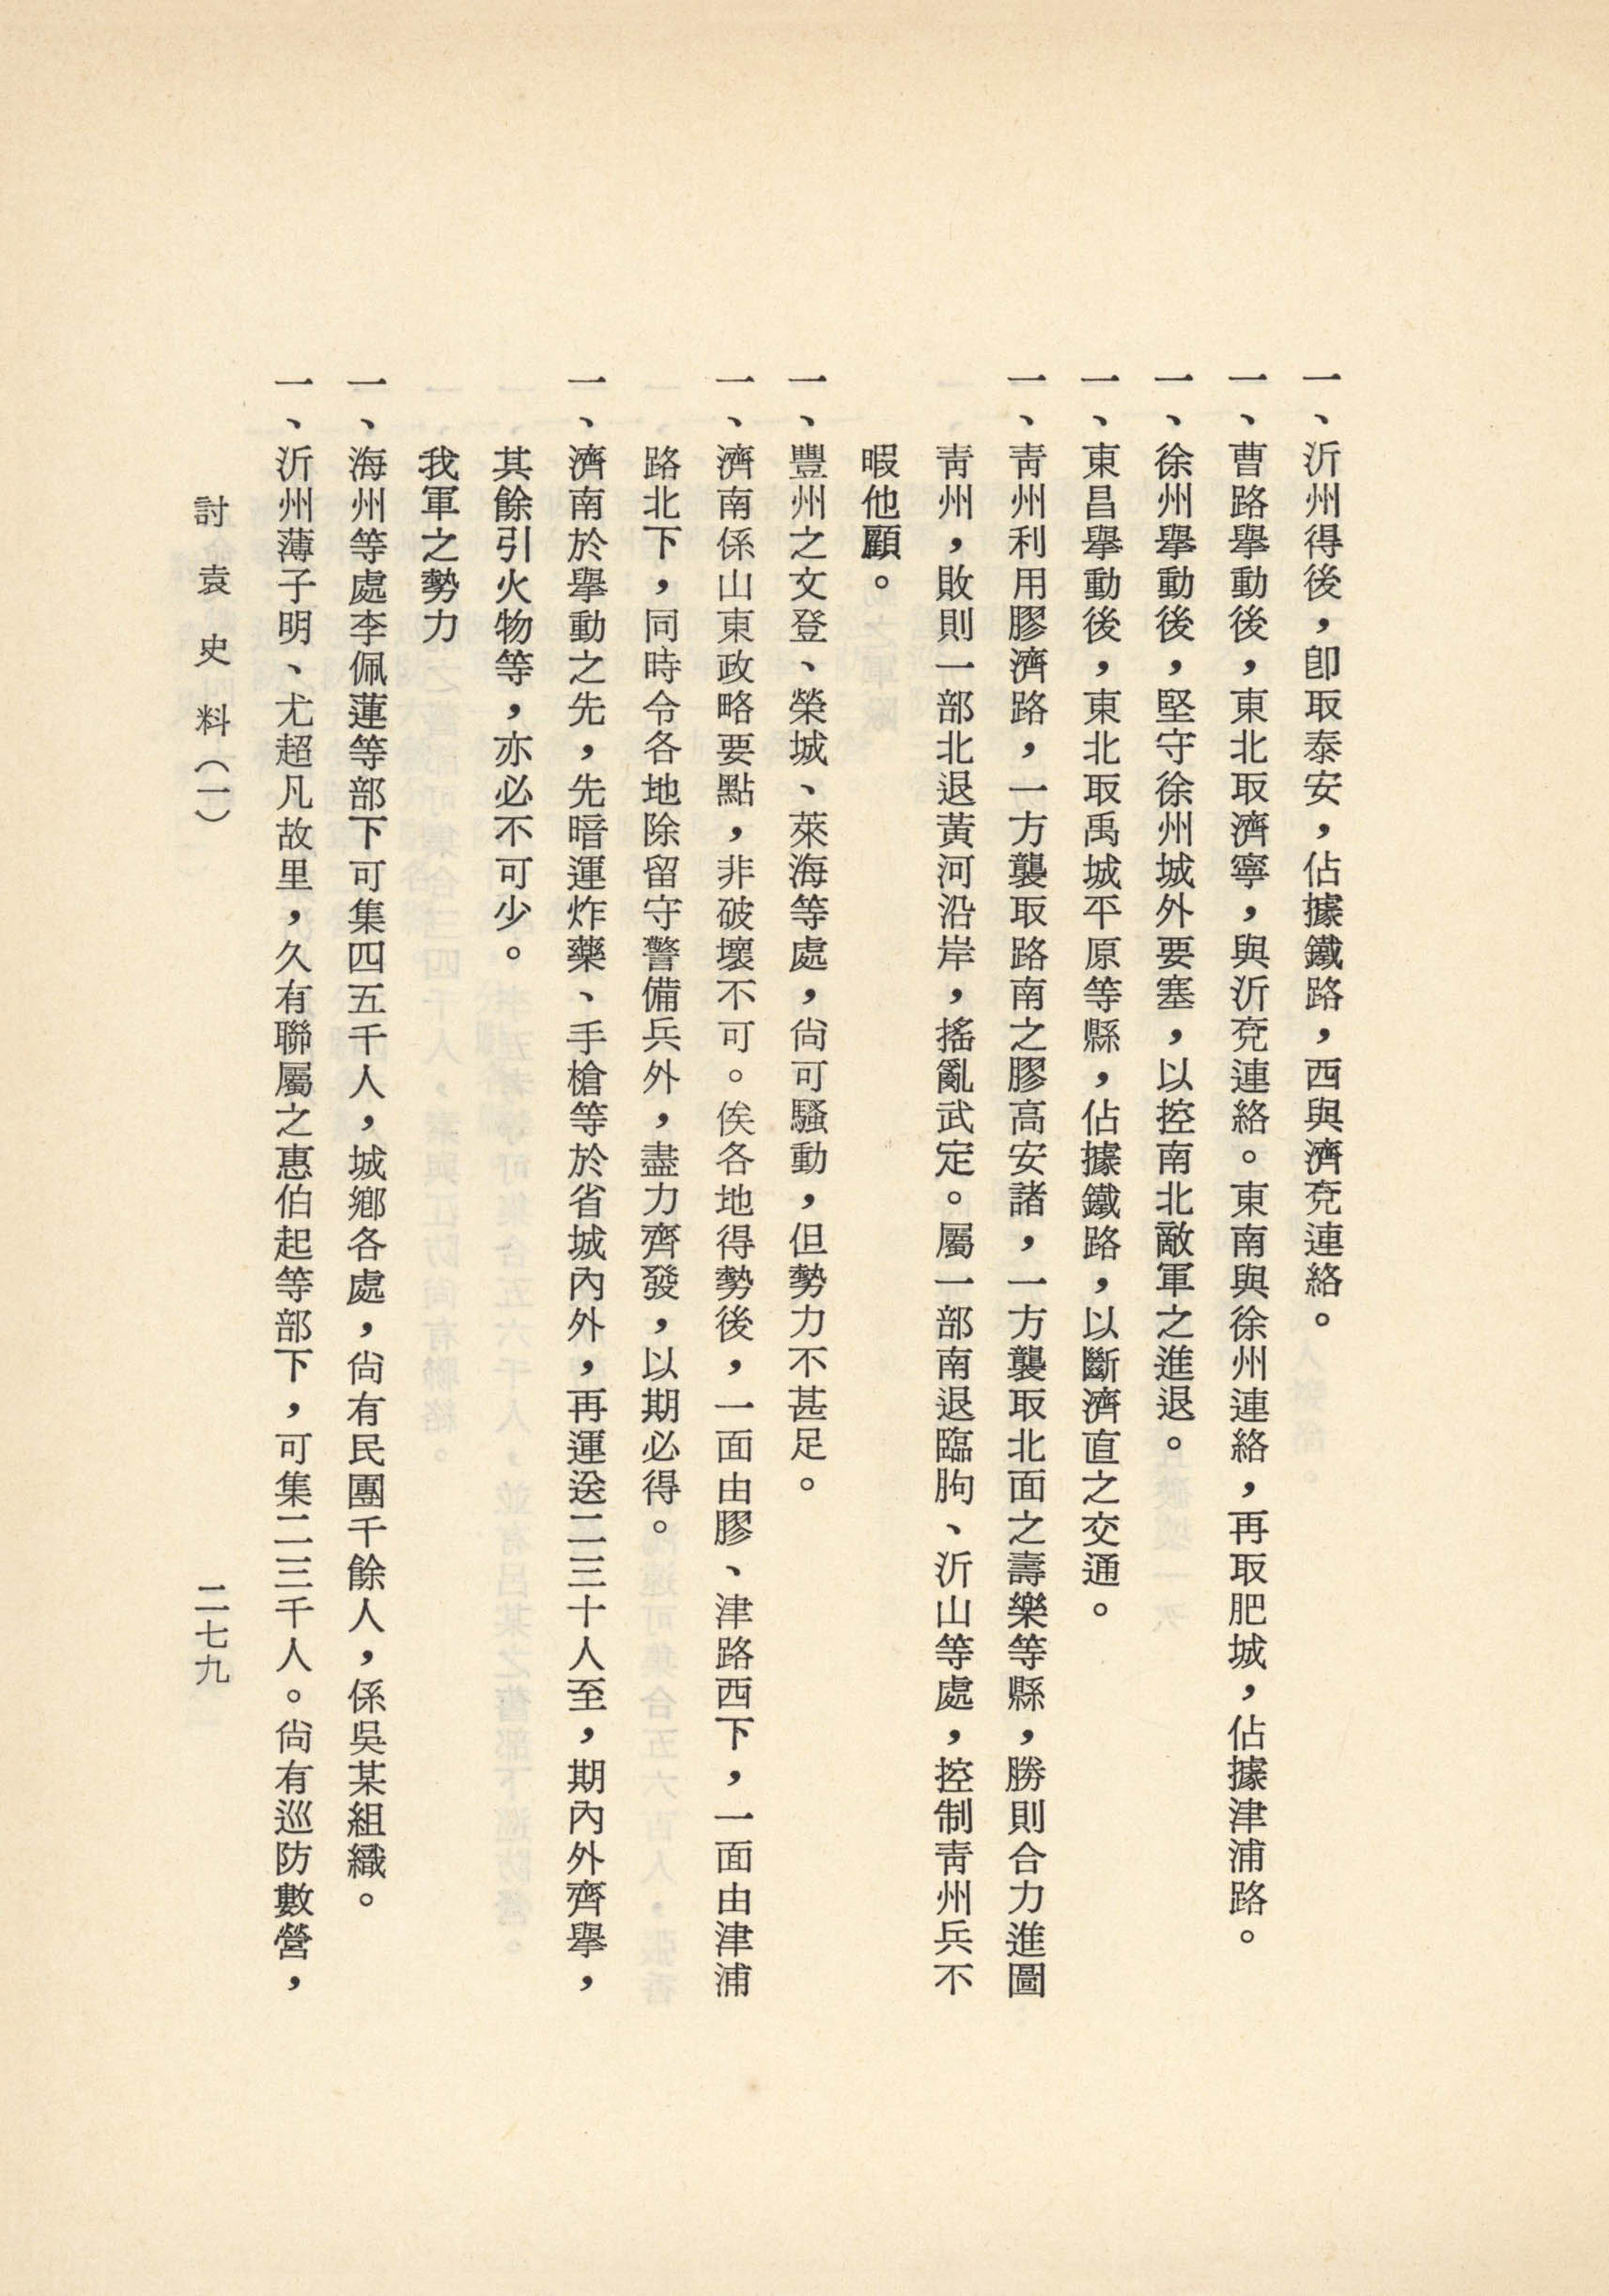 一、沂州得後，卽取泰安，佔據鐵路，西與濟兗連絡。
一、曹路擧動後，東北取濟寧，與沂兗連絡。東南與徐州連絡，再取肥城，佔據津浦路。
一、徐州擧動後，堅守徐州城外要塞，以控南北敵軍之進退。
一、東昌擧動後，東北取禹城平原等縣，佔據鐵路，以斷濟直之交通。
一、靑州利用膠濟路，一方襲取路南之膠高安諸，一方襲取北面之壽樂等縣，勝則合力進圖
靑州，敗則一部北退黃河沿岸，搖亂武定。屬一部南退臨朐、沂山等處，控制靑州兵不
暇他顧。
一、豐州之文登、榮城、萊海等處，尙可騷動，但勢力不甚足。
一、濟南係山東政略要點，非破壞不可。俟各地得勢後，一面由膠、津路西下，一面由津浦
路北下，同時令各地除留守警備兵外，盡力齊發，以期必得。
一、濟南於擧動之先，先暗運炸藥、手槍等於省城內外，再運送二三十人至，期內外齊擧，
其餘引火物等，亦必不可少。
我軍之勢力
一、海州等處李佩蓮等部下可集四五千人，城鄕各處，尙有民團千餘人，係吳某組織。
一、沂州薄子明、尤超凡故里，久有聯屬之惠伯起等部下，可集二三千人。尙有巡防數營，
討袁史料（一）
二七九